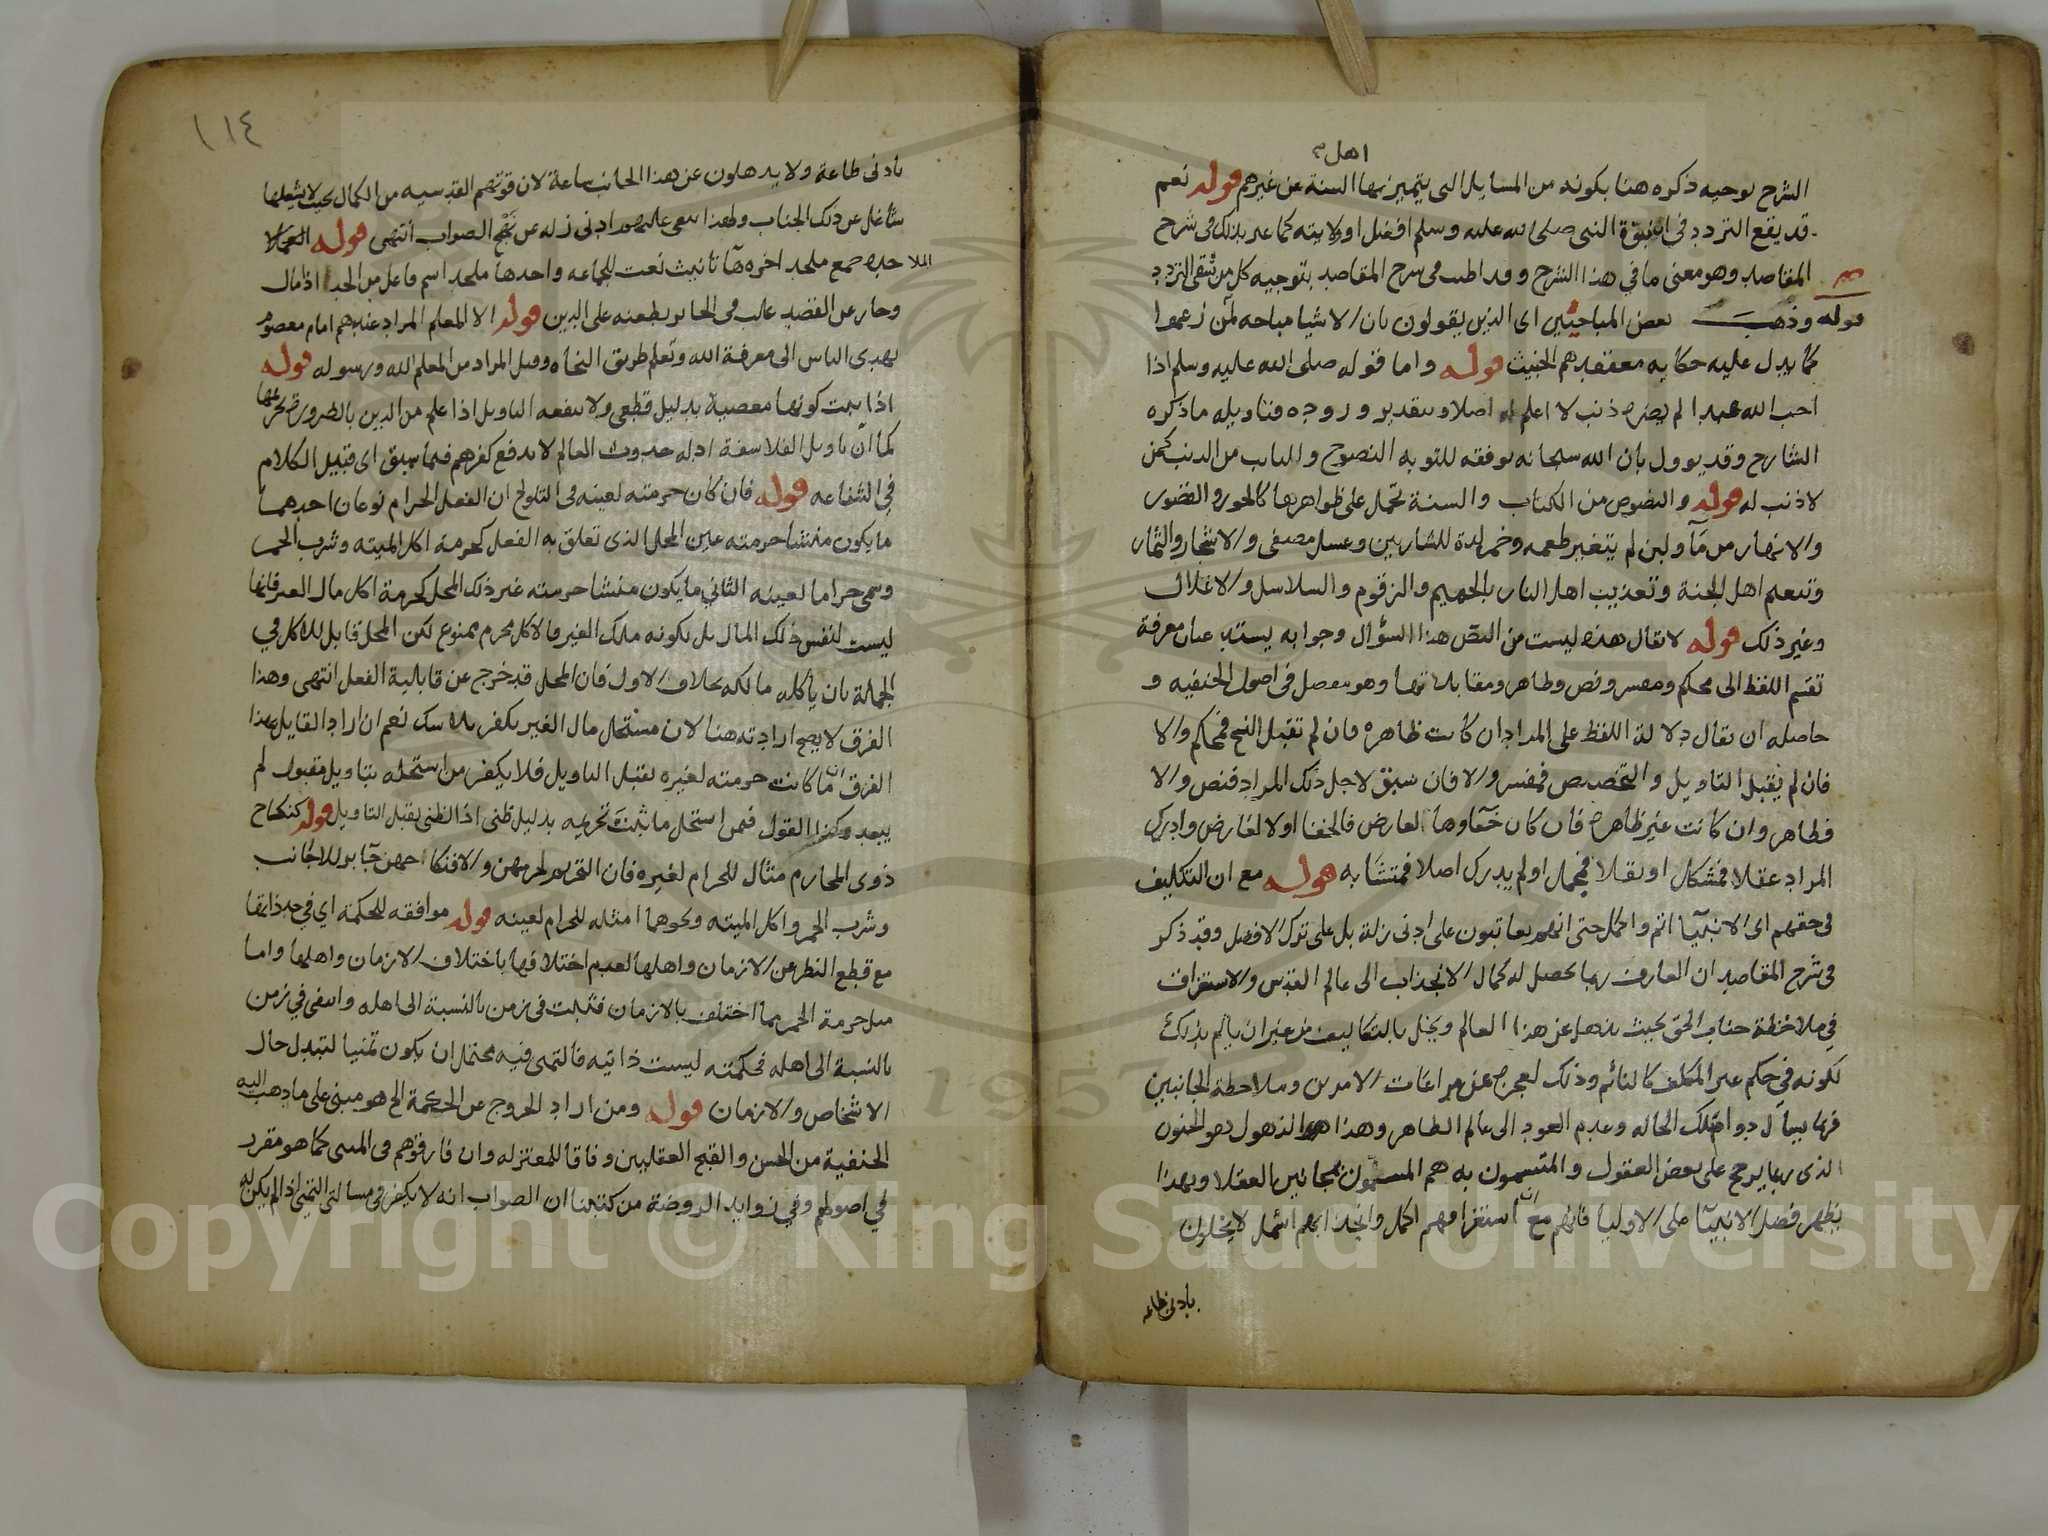 اهل
الشرح توجيه ذكره هنا بكونه من المسايل التي يتميز بها السنة عن غيرهم قوله نعم
قد يقع التردد في ان نبوة النبي صلى الله عليه وسلم افضل او ولايته كما عبر بذلك في شرح
المقاصد وهو معنى ما في هذا الشرح وقد اطنب في شرح المقاصد بتوجيه كل من شقي التردد
قوله وذهب بعض المباحيين اي الذين يقولون بان الاشيا مباحه لمن زعموا
كما يدل عليه حكاية معتقدهم الخبيث قوله واما قوله صلى الله عليه وسلم اذا
احب الله عبدا لم يضره ذنب لا اعلم له اصلا وبتقدير وروده فتاويله ما ذكره
الشارح وقد يوول بان الله سبحانه يوفقه للتوبه النصوح والتايب من الذنب كمن
لا ذنب له قوله والنصوص من الكتاب والسنة تحمل على ظواهرها كالحور والقصور
والانهار من مآ ولبن لم يتغير طعمه وخمر لذة للشاربين وعسل مصفى والاشجار والثمار
وتنعيم اهل الجنة وتعذيب اهل النار بالحميم والزقوم والسلاسل والاغلال
وغير ذلك قوله لا يقال هذه ليست من النص هذا السؤال وجوابه يستدعيان معرفة
تقسيم اللفظ الى محكم ومفسر ونص وظاهر ومقابلاتها وهو مفصل في اصول الحنفيه و
حاصله ان يقال دلالة اللفظ على المراد ان كانت ظاهره فان لم تقبل النسخ فمحكم والا
فان لم يقبل التاويل والتخصيص فمفسر والا فان سيق لاجل ذلك المراد فنص والا
فظاهر وان كانت غير ظاهرة فان كان خفاوها لعارض فالخفا او لا لعارض وادرك
المراد عقلا فمشكل او نقلا فمجمل او لم يدرك اصلا فمتشابه قوله مع ان التكليف
في حقهم اي الانبيآ اتم واكمل حتى انهم يعاتبون على ادنى زلة بل على ترك الافضل وقد ذكر
في شرح المقاصد ان العارف ربما يحصل له كمال الانجذاب الى عالم القدس والاستغراق
في ملاحظة جناب الحق بحيث يذهل عن هذا العالم ويخل بالتكاليف من غير ان ياثم بذلك
لكونه في حكم غير المكلف كالنائم وذلك لعجزه عن مراعات الامرين وملاحظة الجانبين
فربما يسأل دوام تلك الحاله وعدم العود الى عالم الظاهر وهذا هو الذهول هو الجنون
الذي ربما يرجح على بعض العقول والمتسمون به هم المسمون بمجانين العقلا وبهذا
يظهر فضل الانبيآ على الاوليا فانهم مع ان استغراقهم اكمل وانجذابهم اشمل لا يخلون
بادنى طاعه
١١٤
بادنى طاعة ولا يذهلون عن هذا الجانب ساعة لان قوتهم القدسيه من الكمال بحيث لا يشغلها
شاغل عن ذلك الجناب ولهذا ينعى عليهم ادنى زله عن نهج الصواب انتهى قوله
الملاحده جمع ملحد اخره هآ تانيث نعت للجماعه واحدها ملحد اسم فاعل من الحد اذا مال
وحار عن القصد غلب في الحاير بطعنه على الدين قوله الا المعلم المراد عندهم امام معصوم
يهدي الناس الى معرفة الله وتعلم طريق النجاه وقيل المراد من المعلم الله ورسوله قوله
اذا ثبت كونها معصية بدليل قطعي ولا ينفعه التاويل اذا علم من الدين بالضرورة تحريمها
كما ان تاويل الفلاسفة ادلة حدوث العالم لا يدفع كفرهم فيما سبق اي قبيل الكلام
في الشفاعه قوله فان كان حرمته لعينه في التلويح ان الفعل الحرام نوعان احدهما
ما يكون منشا حرمته عين المحل الذي تعلق به الفعل كحرمة اكل الميته وشرب الخمر
وسمي حراما لعينه الثاني ما يكون منشا حرمته غير ذلك المحل كحرمة اكل مال الغير فانها
ليست لنفس ذلك المال بل لكونه ملك الغير فالاكل محرم ممنوع لكن المحل قابل للاكل في
الجملة بان ياكله مالكه بخلاف الاول فان المحل قد خرج عن قابلية الفعل انتهى وهذا
الفرق لا يصح ارادته هنا لان مستحل مال الغير يكفر بلا شك نعم ان اراد القايل بهذا
الفرق ان ما كانت حرمته لغيره يقبل التاويل فلا يكفر من استحله بتاويل مقبول لم
يبعد وكذا القول فيمن استحل ما ثبت تحريمه بدليل ظني اذ الظني يقبل التاويل قوله كنكاح
ذوي المحارم مثال للحرام لغيره فان التحريم لحرمتهن والا فنكاحهن جايز للاجانب
وشرب الخمر واكل الميته ونحوهما امثله للحرام لعينه قوله موافقه للحكمة اي في حد ذاتها
مع قطع النظر عن الازمان واهلها لعدم اختلافها باختلاف الازمان واهلها واما
مثل حرمة الخمر مما اختلف بالازمان فثبت في زمن بالنسبة الى اهله وانتفى في زمن
بالنسبة الى اهله فحكمته ليست ذاتيه فالتمني فيه محتمل ان يكون تمنيا لتبدل حال
الاشخاص والازمان قوله ومن اراد الخروج عن الحكمة الخ هو مبني على ما ذهب اليه
الحنفية من الحسن والقبح العقليين وفاقا للمعتزله وان فارقوهم في المبنى كما هو مقرر
في اصولهم وفي زوايد الروضة من كتبنا ان الصواب انه لا يكفر في مسالتي التمني اذا لم يكن له
Copyright © King Saud University
1957